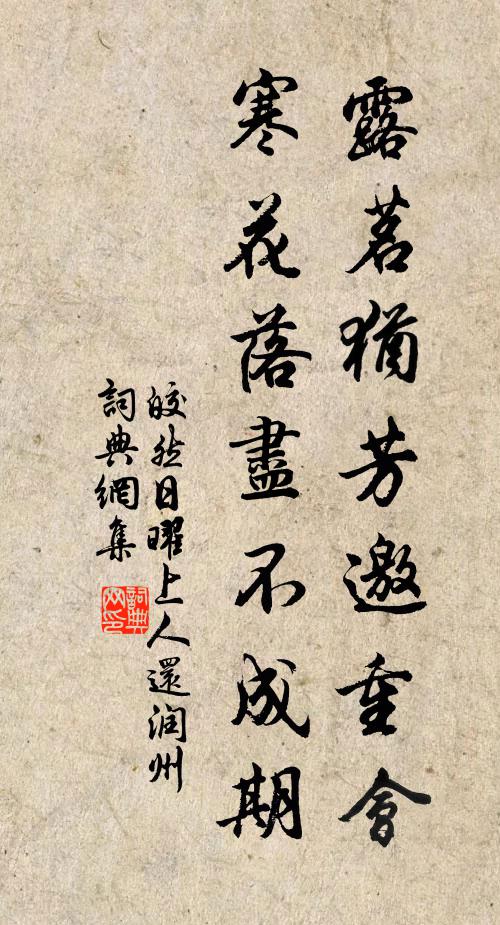 露茗猶芳邀重會
寒花落盡不成期
皎然日曜上人還润州
詞典網集
詞典
网印